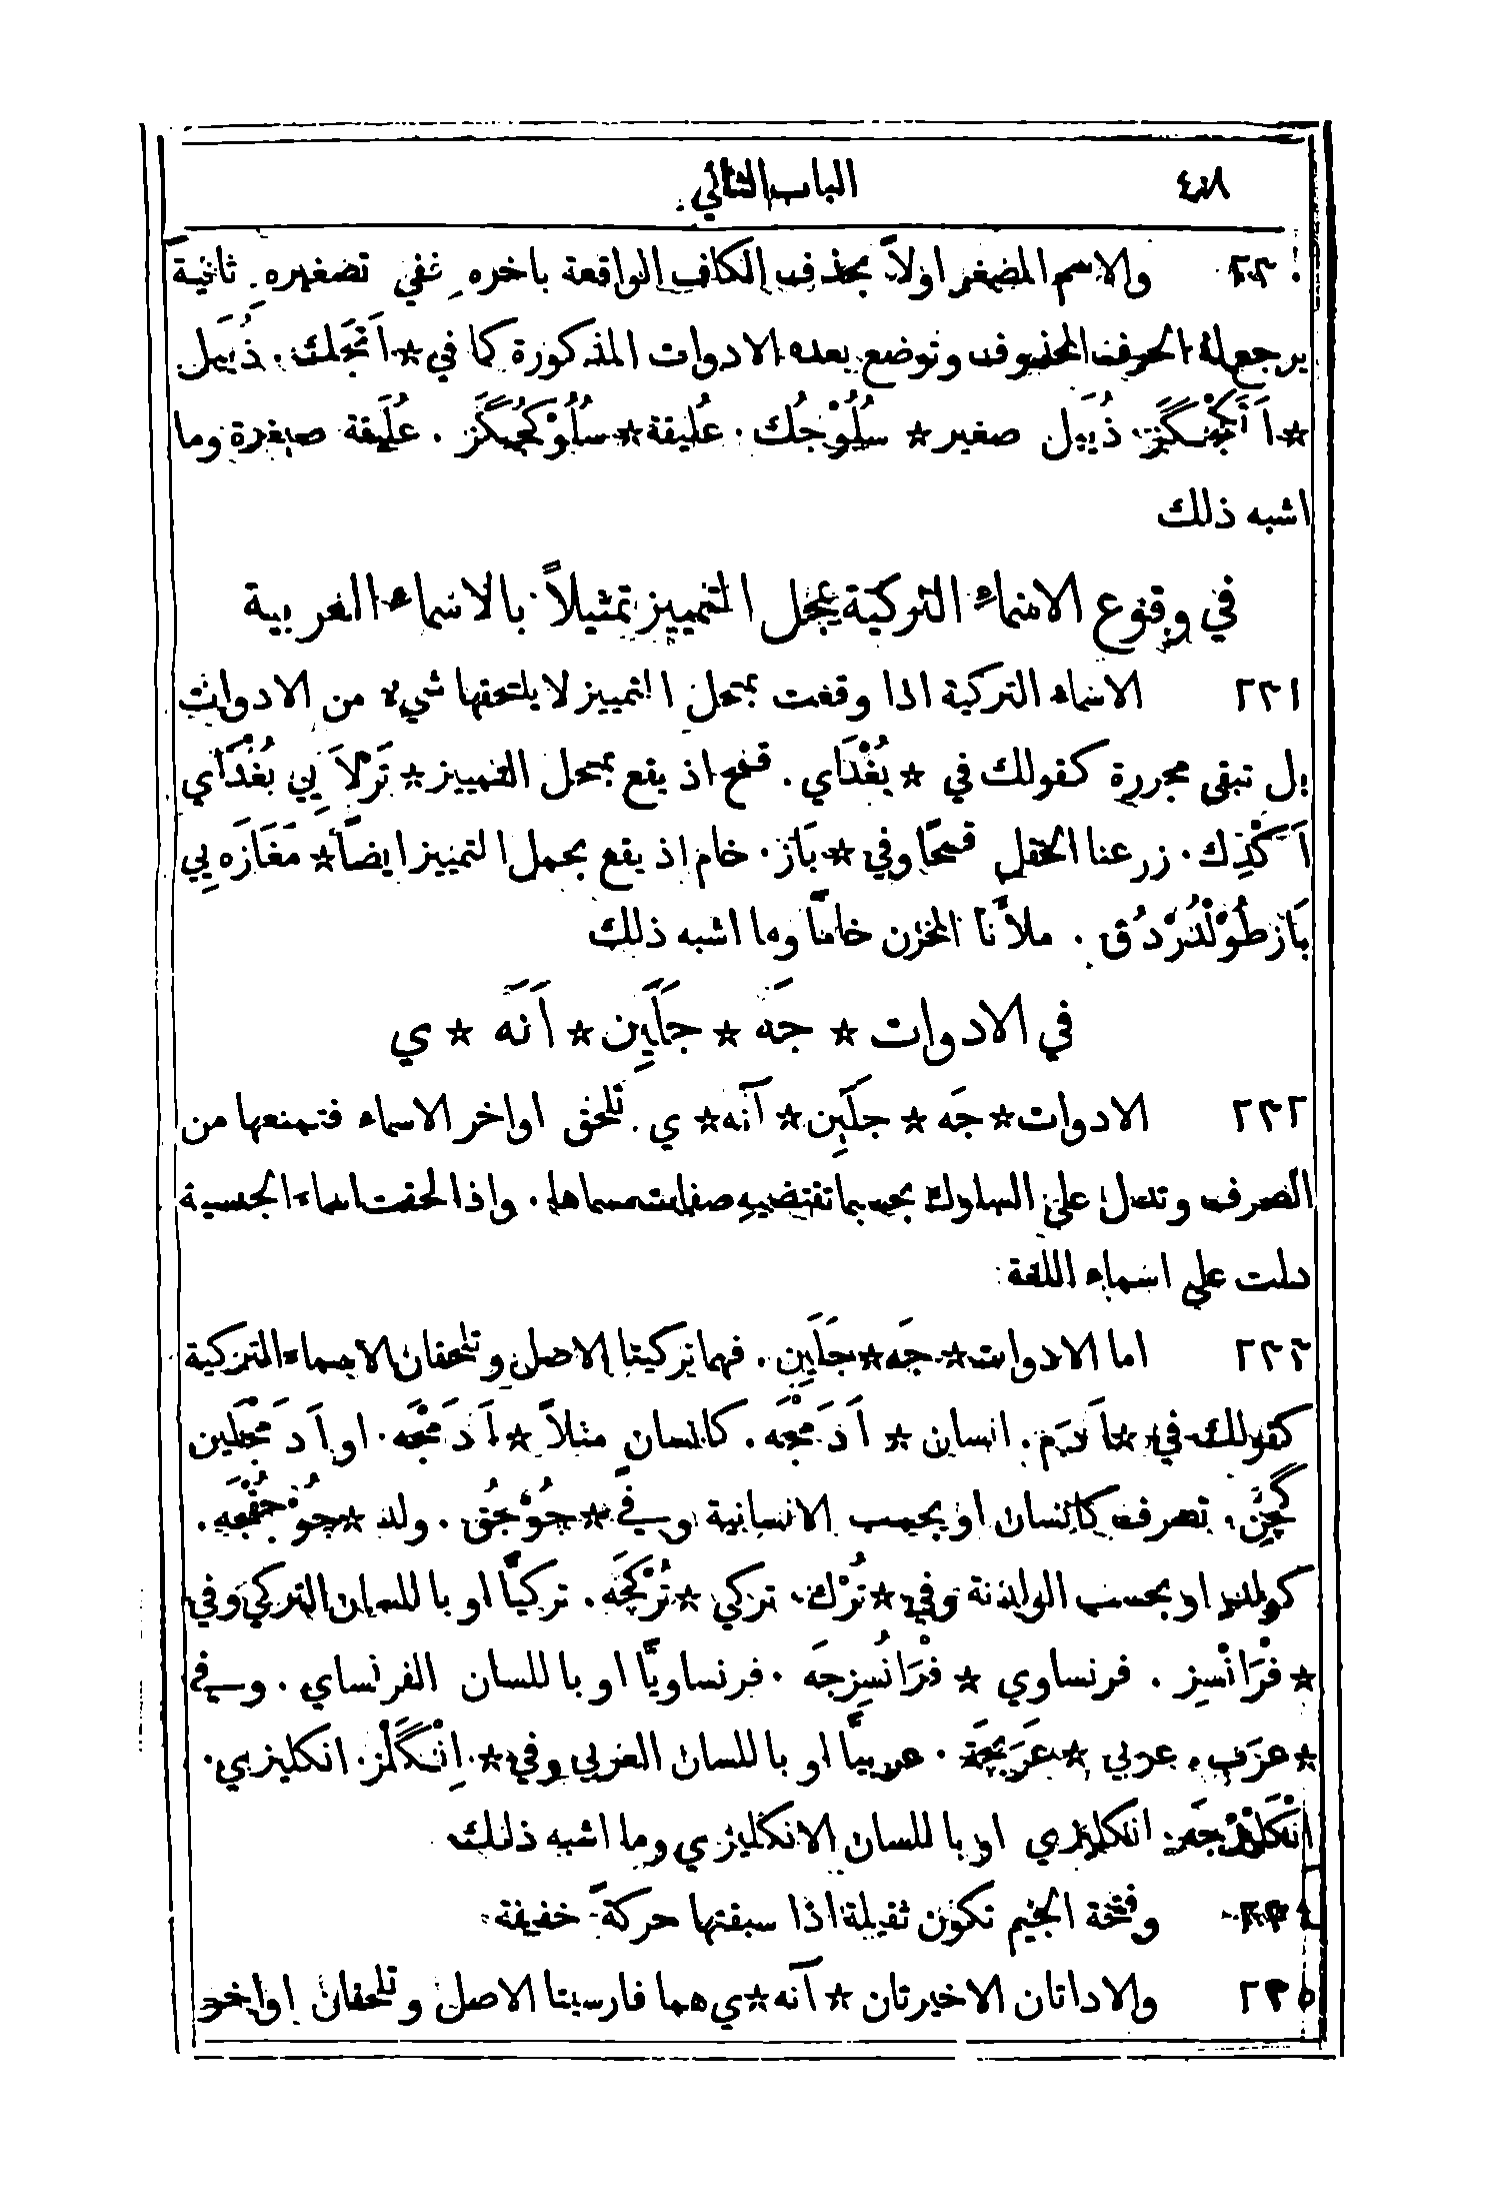 الباب الثاني
والاسم المصغر اولاً بحذف الكاف الواقعة باخره ففي تصغيره ثانية
يرجع له الحرف المحذوف وتوضع بعده الادوات المذكورة كما في ★ ذُبيل
★ ذُبيل صغير ★ سُلُوْجُك . عُليقة ★ عُلَيقة صغيرة وما
اشبه ذلك
في وقوع الاسماء التركية بمحل التمييز تمثيلاً بالاسماء العربية
٢٣١ الاسماء التركية اذا وقعت بمحل التمييز لا يلتحقها شيء من الادوات
بل تبقى مجررة كقولك في ★ بُغْدَاي . قمح اذ يقع بمحل التمييز ★ تَرْلاَ يِي بُغْدَاي
اَكْدِك . زرعنا الحقل قمحًا وفي ★ بَاز . خام اذ يقع بحمل التمييز ايضاً ★ مَغَازَه يِي
بَاز طُوْلْدُرْدُق . ملأنا المخزن خامًا وما اشبه ذلك
في الادوات ★ جَه ★ جَلَيِن ★ اَنَه ★ ي
٢٣٢ الادوات ★ جَه ★ جلَيِن ★ آنَه ★ ي . تلحق اواخر الاسماء فتمنعها من
الصرف وتدل على السلوك بحسبما تقتضيهِ صفات مسماها . واذا لحقت اسماء الجنسية
دلت على اسماء اللغة
٢٣٣ اما الادوات ★ جَه ★ جَلَيِن . فهما تركيتا الاصل وتلحقان الاسماء التركية
كقولك في ★ اَدَم . انسان ★ اَدَمْجَه . كانسان مثلاً ★ اَدَمْجَه . او اَدَمْجَلَين
تصرف كانسان او بحسب الانسانية وفي ★ جُوْجُق . ولد ★
كولد او بحسب الولدنة وفي ★ تُرْك . تركي ★ تُرْكْجَه . تركيًّا او باللسان التركي وفي
★ فْرَانْسِز . فرنساوي ★ فْرَانْسِزجَه . فرنساويًّا او باللسان الفرنساوي . وفي
★ عرَب . عربي ★ عَرَبْجَة . عربيًّا او باللسان العربي وفي ★ اِنْكَلْز . انكليزي .
انْكَلْزْجَه . انكليزي او باللسان الانكليزي وما اشبه ذلك
وفتحة الجيم تكون ثقيلة اذا سبقتها حركة خفيفة
٢٣٥ والاداتان الاخيرتان ★ آنَه ★ ي هما فارسيتا الاصل وتلحقان اواخر